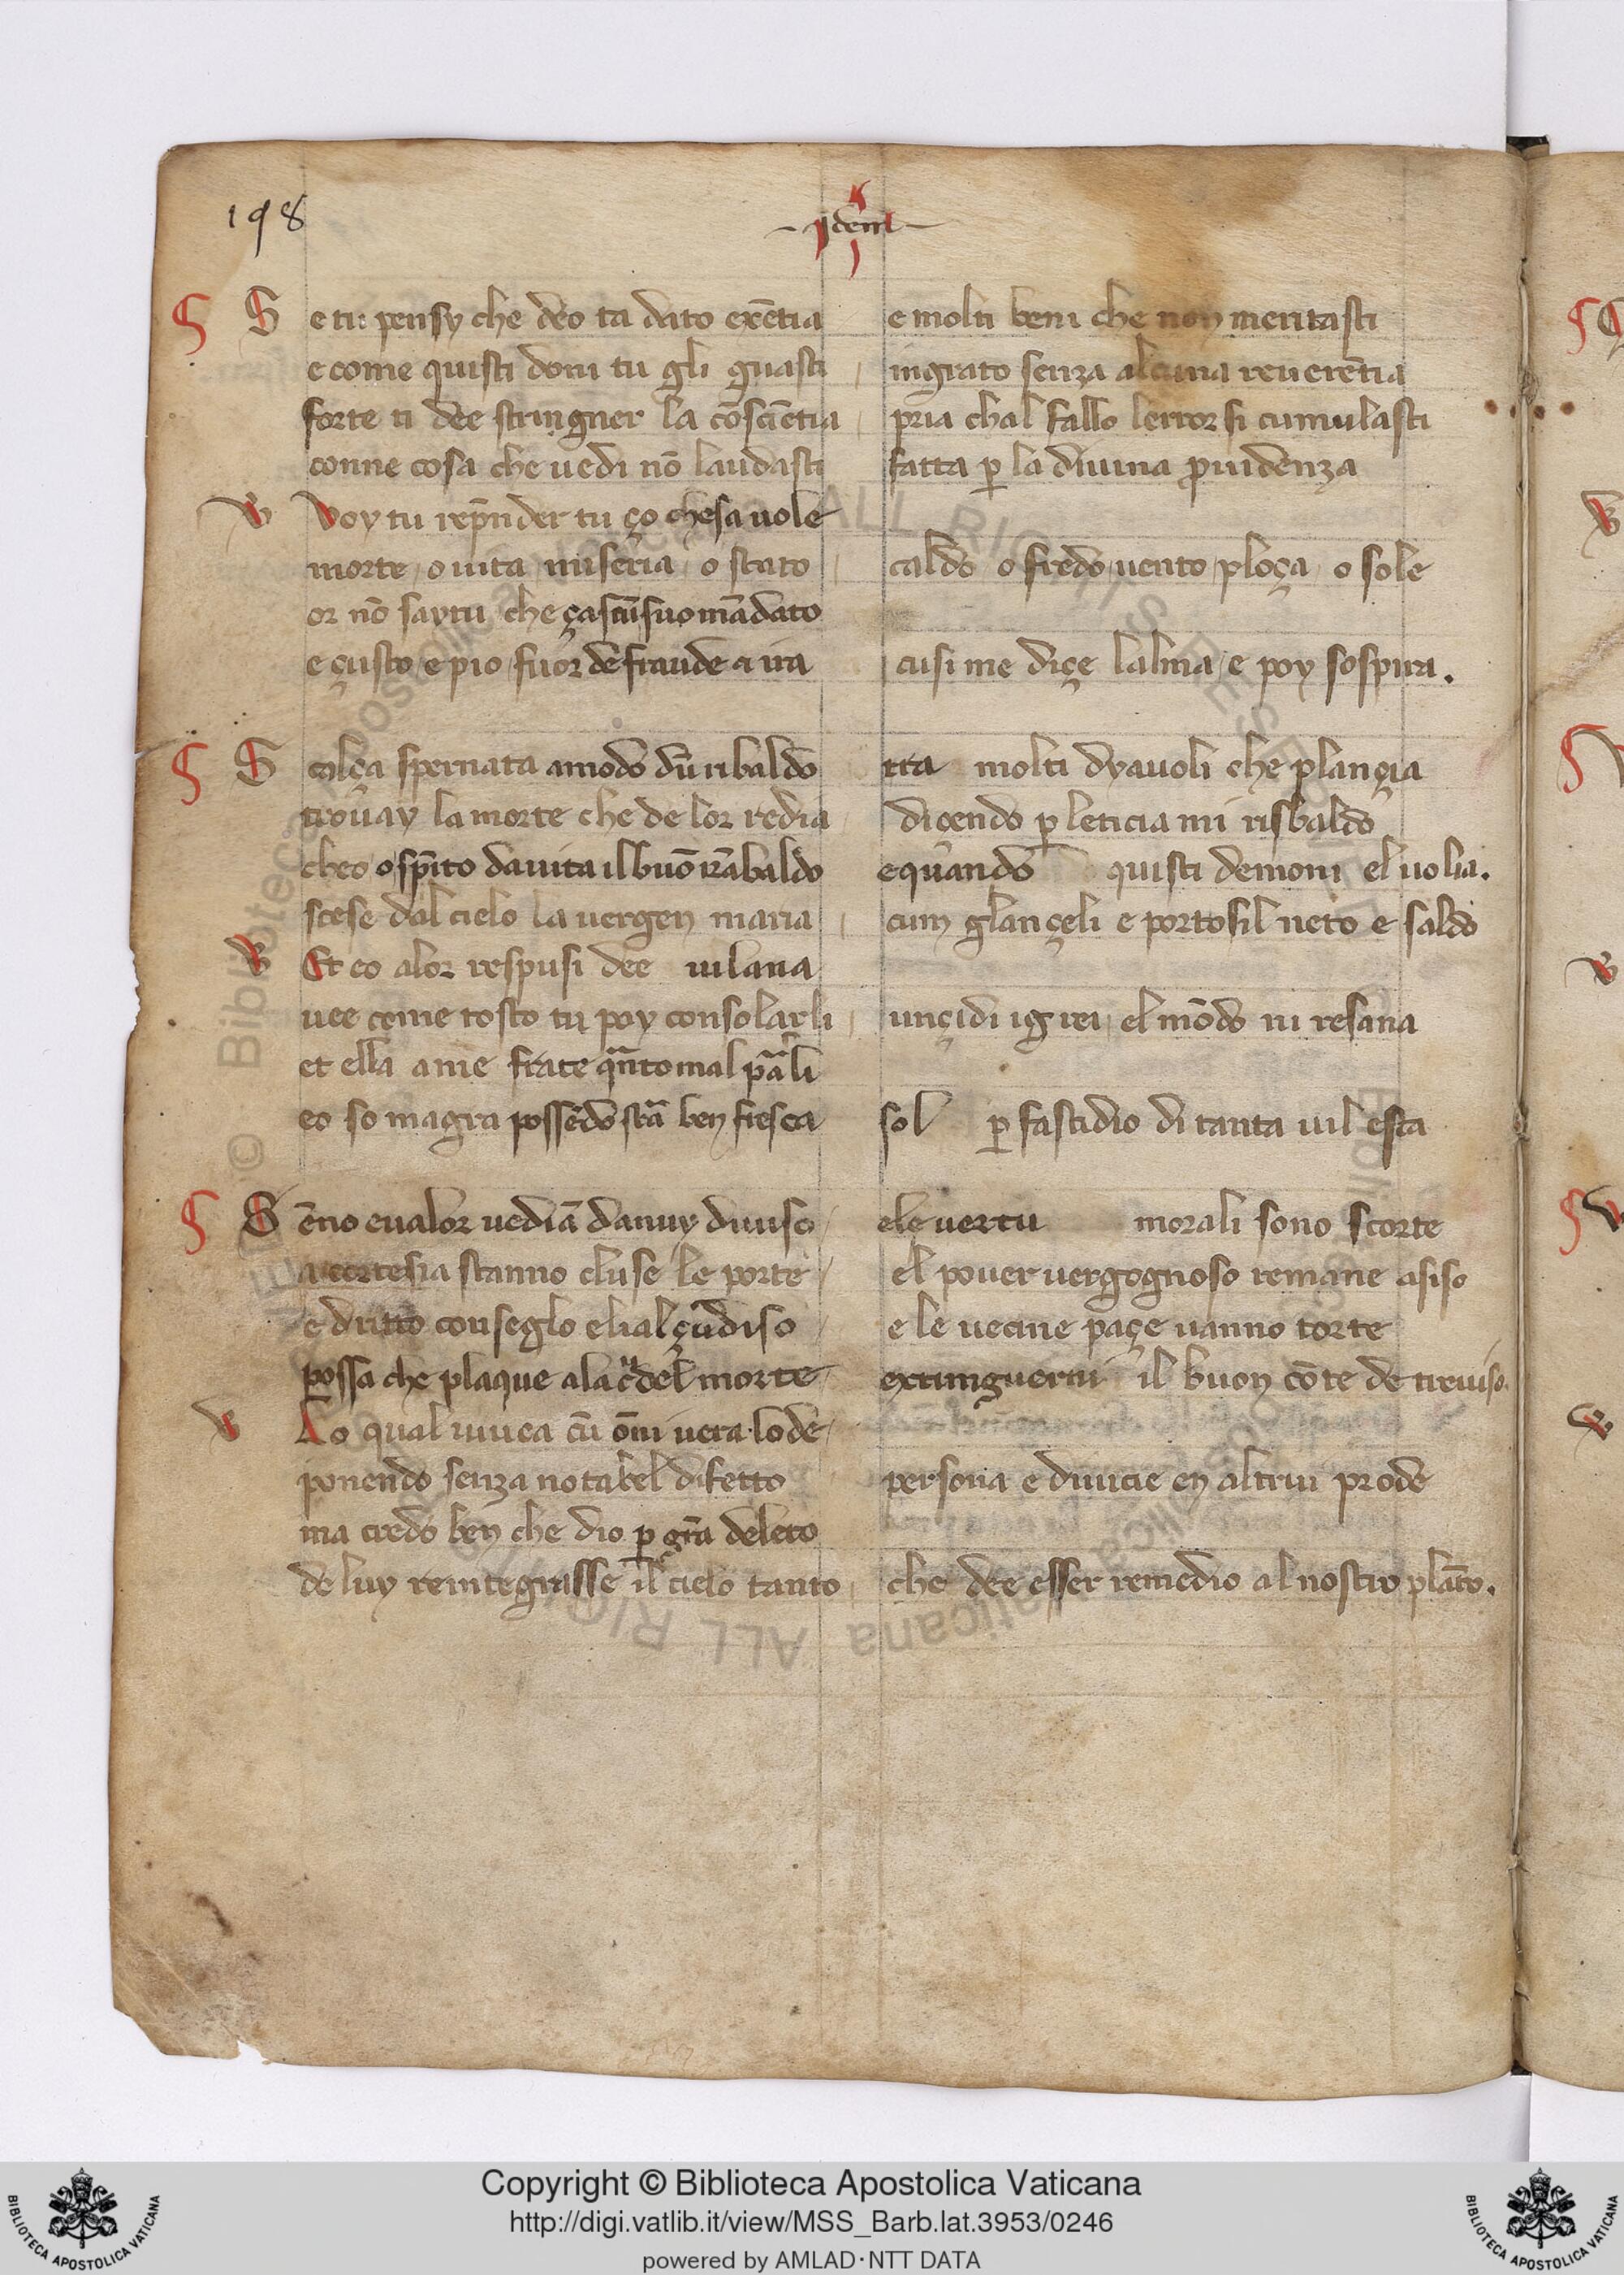 198
Idem
¶ S e tu pensy che deo ta dato exētia e molti beni che non meritasti
e come quisti doni tu gli guasti ingrato senza alcuna reuerētia
forte ti dee stringner la cōsciētia pria chal fallo lerror si cumulasti
conne cosa che uedi nō laudasti fatta p la diuina prouidenza
V Voy tu rep̄nder tu ço chesa uole
morte o uita miseria o stato caldo o fredo uento ploça o sole
or nō saytu che çascū suo mādato
e çusto e pio fuor de fraude & ira cusi me diçe lalma e poy sospira.
¶ S calça spernata a modo dū ribaldo tra molti dyauoli che plançia
trouay la morte che de lor redia diçendo p leticia mi risbaldo
cheo o sp̄ito da uita il buō rābaldo e quando quisti demoni el uolia.
scese dal cielo la uergen maria cum glançeli e portosil neto e saldo
V Et eo alor respusi dee uilana
uee come tosto tu poy consolarli unçidi igrei el mōdo ni resana
et ella a me frate qnto mal pali
eo so magra possēdo stā ben fresca sol p fastidio di tanta uil esca
¶ S ēno e ualor uediā da nuy diuiso e le uertu morali sono scorte
a cortesia stanno cluse le porte el pouer uergognoso remane asiso
e dritto conseglo elial çudiso e le uecine paçe uanno torte
possa che plaque ala crudel morte extinguerni il buon cōte de treuiso.
V Lo qual uiuea cū ōni uera lode
ponendo senza notabel difetto persona e diuicie en altrui prode
ma credo ben che dio p grā deleto
de luy reintegrasse il cielo tanto che dee esser remedio al nostro plāto.
Copyright © Biblioteca Apostolica Vaticana
http://digi.vatlib.it/view/MSS_Barb.lat.3953/0246
powered by AMLAD·NTT DATA
BIBLIOTECA APOSTOLICA VATICANA
BIBLIOTECA APOSTOLICA VATICANA